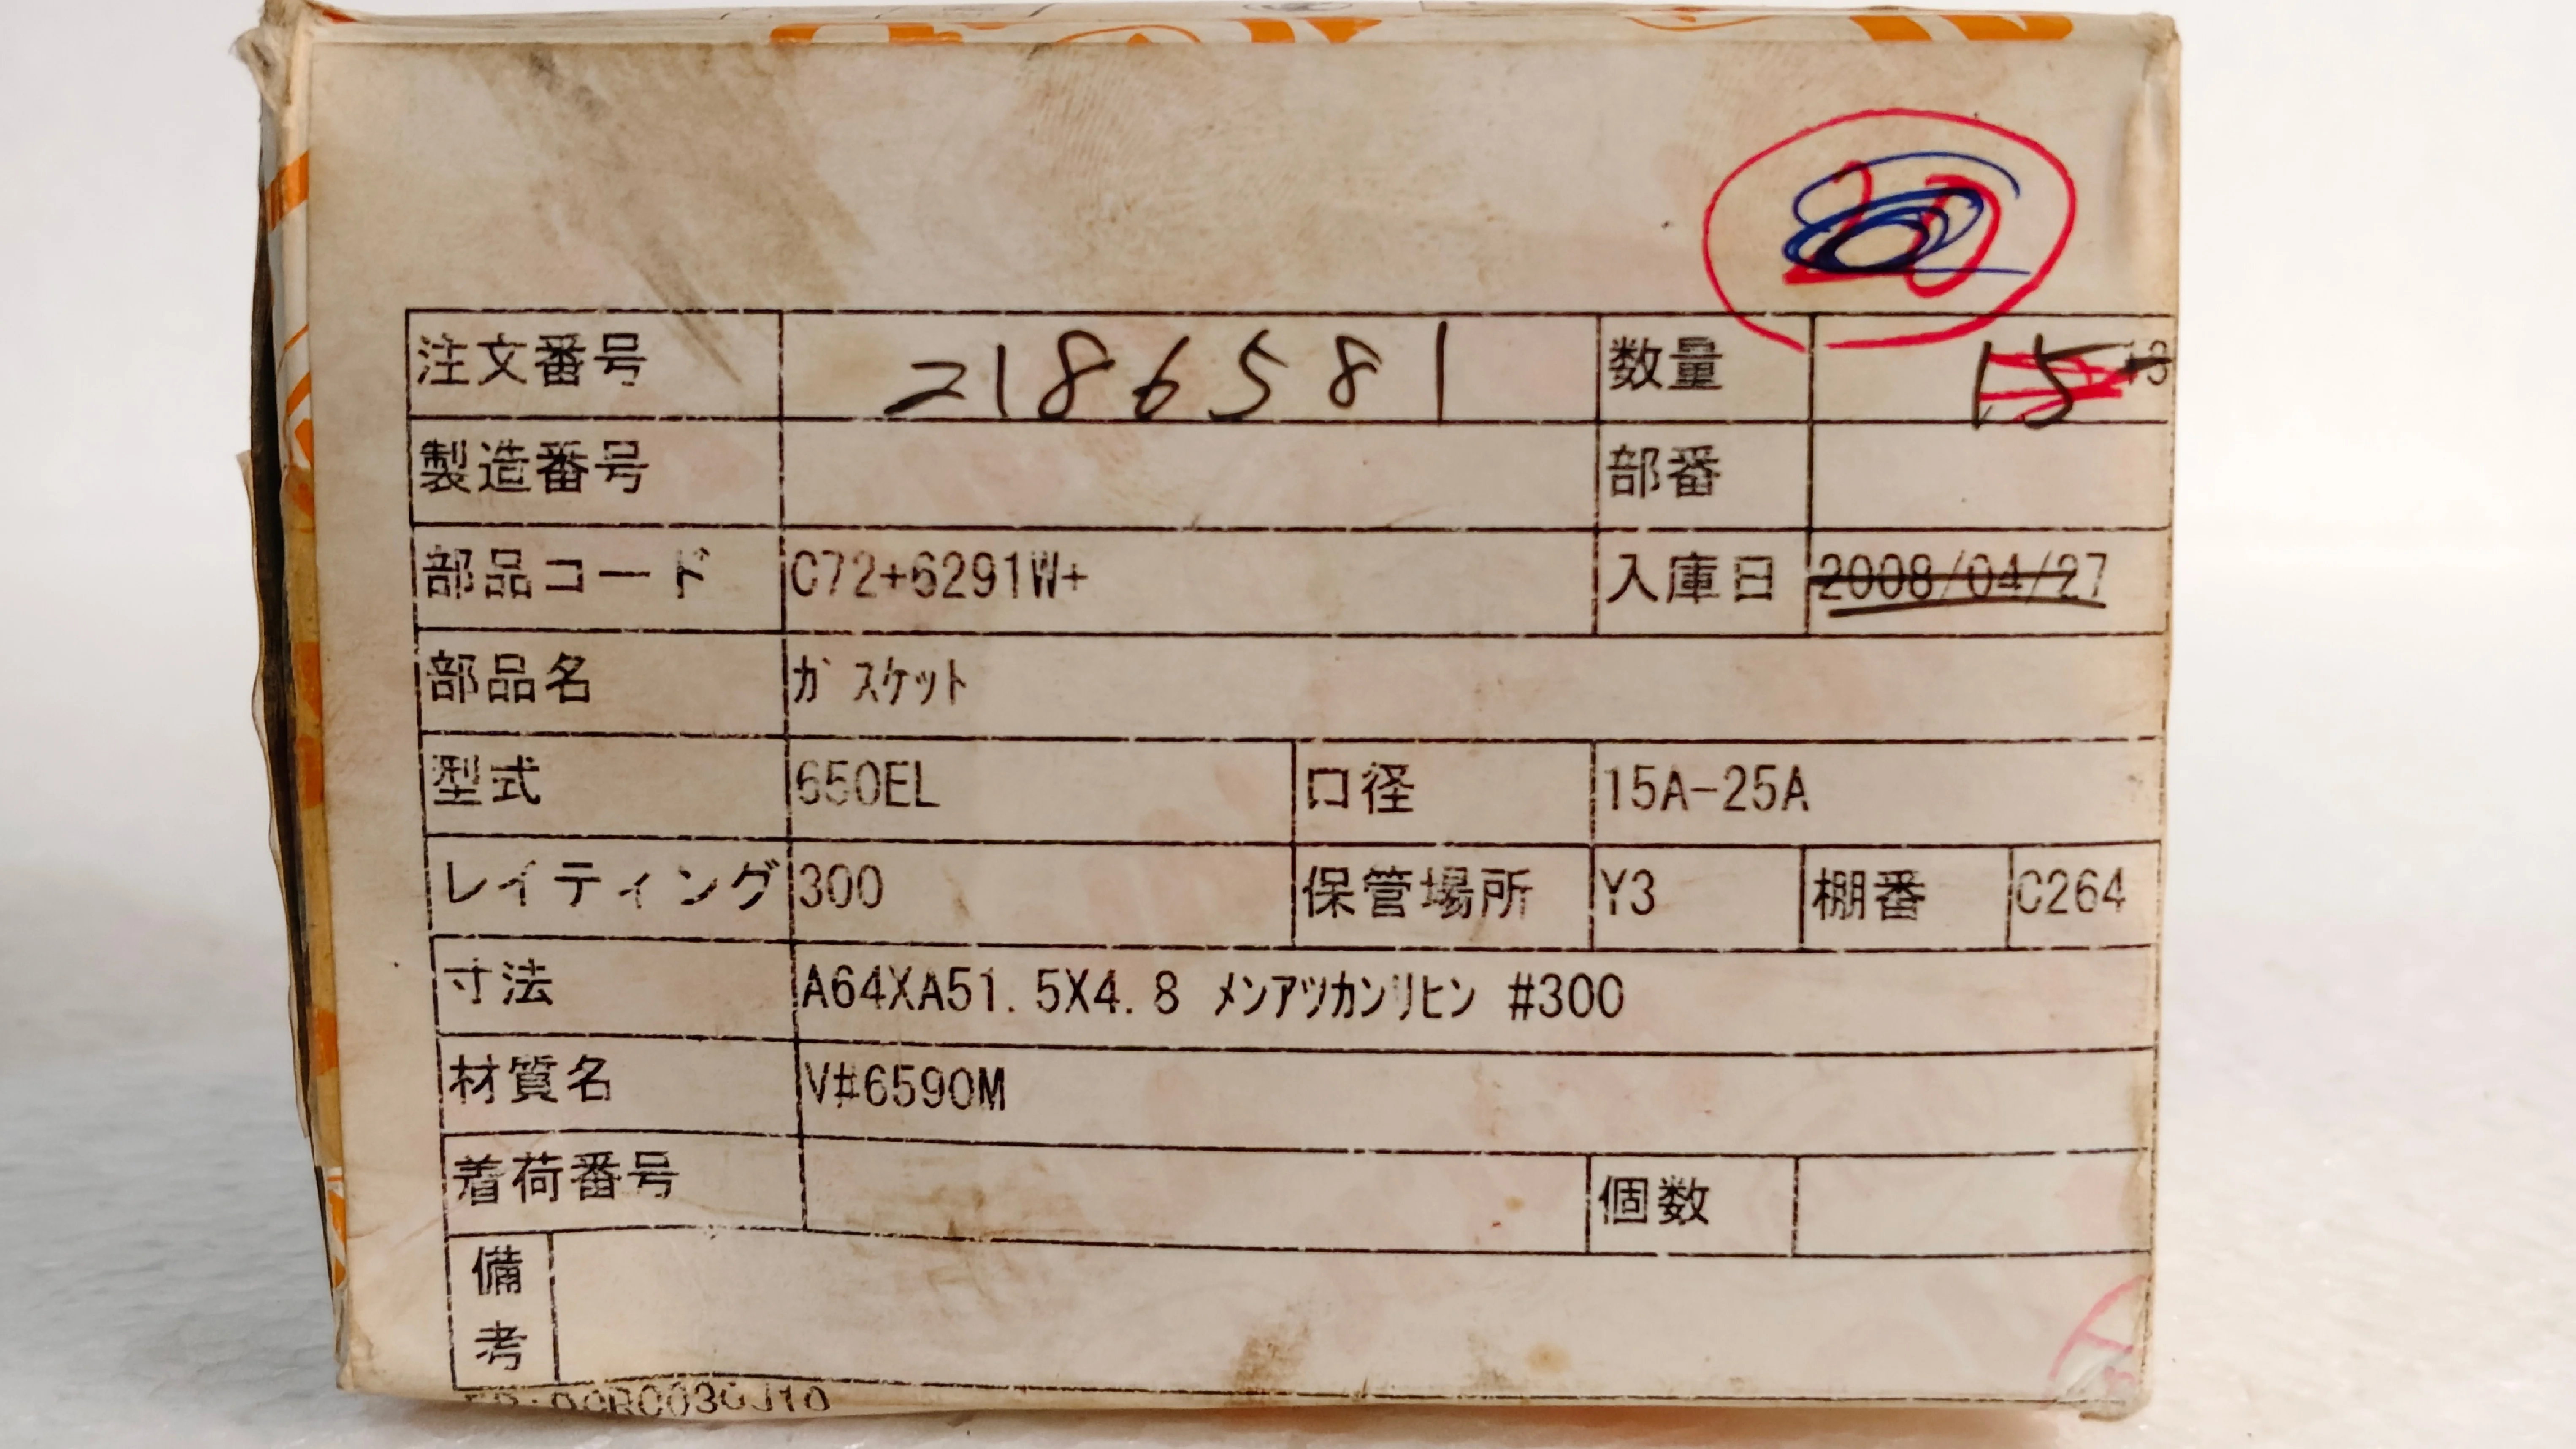 注文番号 2186581 数量 15
製造番号 部番
部品コード C72+6291W+ 入庫日 2008/04/27
部品名 ｶﾞｽｹｯﾄ
型式 650EL 口径 15A-25A
レイティング 300 保管場所 Y3 棚番 C264
寸法 A64XA51.5X4.8 ﾒﾝｱﾂｶﾝﾘﾋﾝ #300
材質名 V#6590M
着荷番号 個数
備考